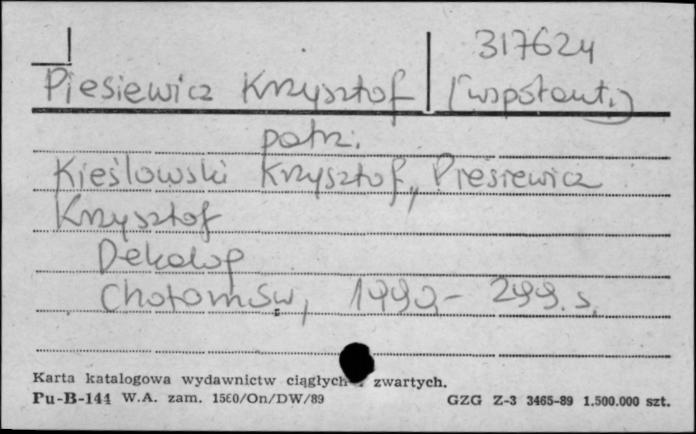 317624
Piesiewicz Krzysztof (współaut.)
patrz.
Kieślowski Krzysztof, Piesiewicz
Krzysztof
Dekalog
Chotomów, 1990, - 299. s.
Karta katalogowa wydawnictw ciągłych i zwartych.
Pu-B-144 W.A. zam. 1560/On/DW/89 GZG Z-3 3465-89 1.500.000 szt.